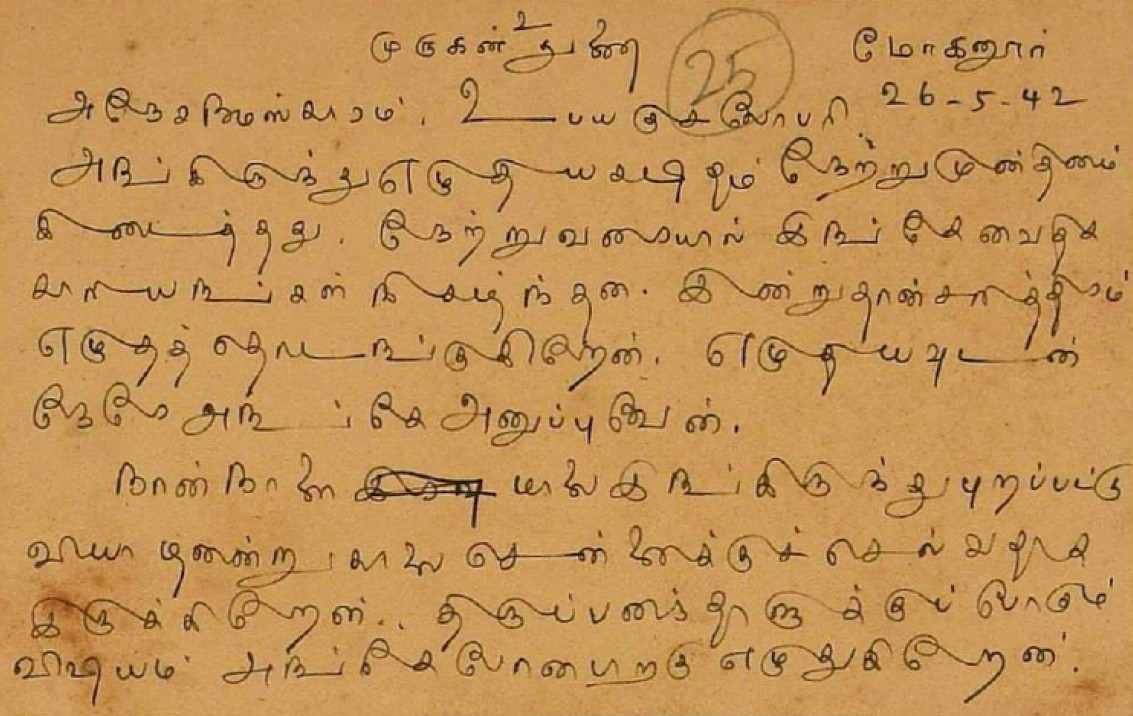 உ
முருகன் துணை
25
மோகனூர்
26-5-42
அநேக நமஸ்காரம். உபயகுசலோபரி.
அங்கிருந்து எழுதிய கடிதம் நேற்று முன்தினம்
கிடைத்தது. நேற்று வரையில் இங்கே வைதிக
காரியங்கள் நிகழ்ந்தன. இன்றுதான் சரித்திரம்
எழுதத் தொடங்குகிறேன். எழுதியவுடன்
நேரே அங்கே அனுப்புவேன்.
நான் நாளை மாலை இங்கிருந்து புறப்பட்டு
வியாழனன்று காலை சென்னைக்குச் செல்வதாக
இருக்கிறேன்.. திருப்பனந்தாளுக்குப் போகும்
விஷயம் அங்கே போனபிறகு எழுதுகிறேன்.